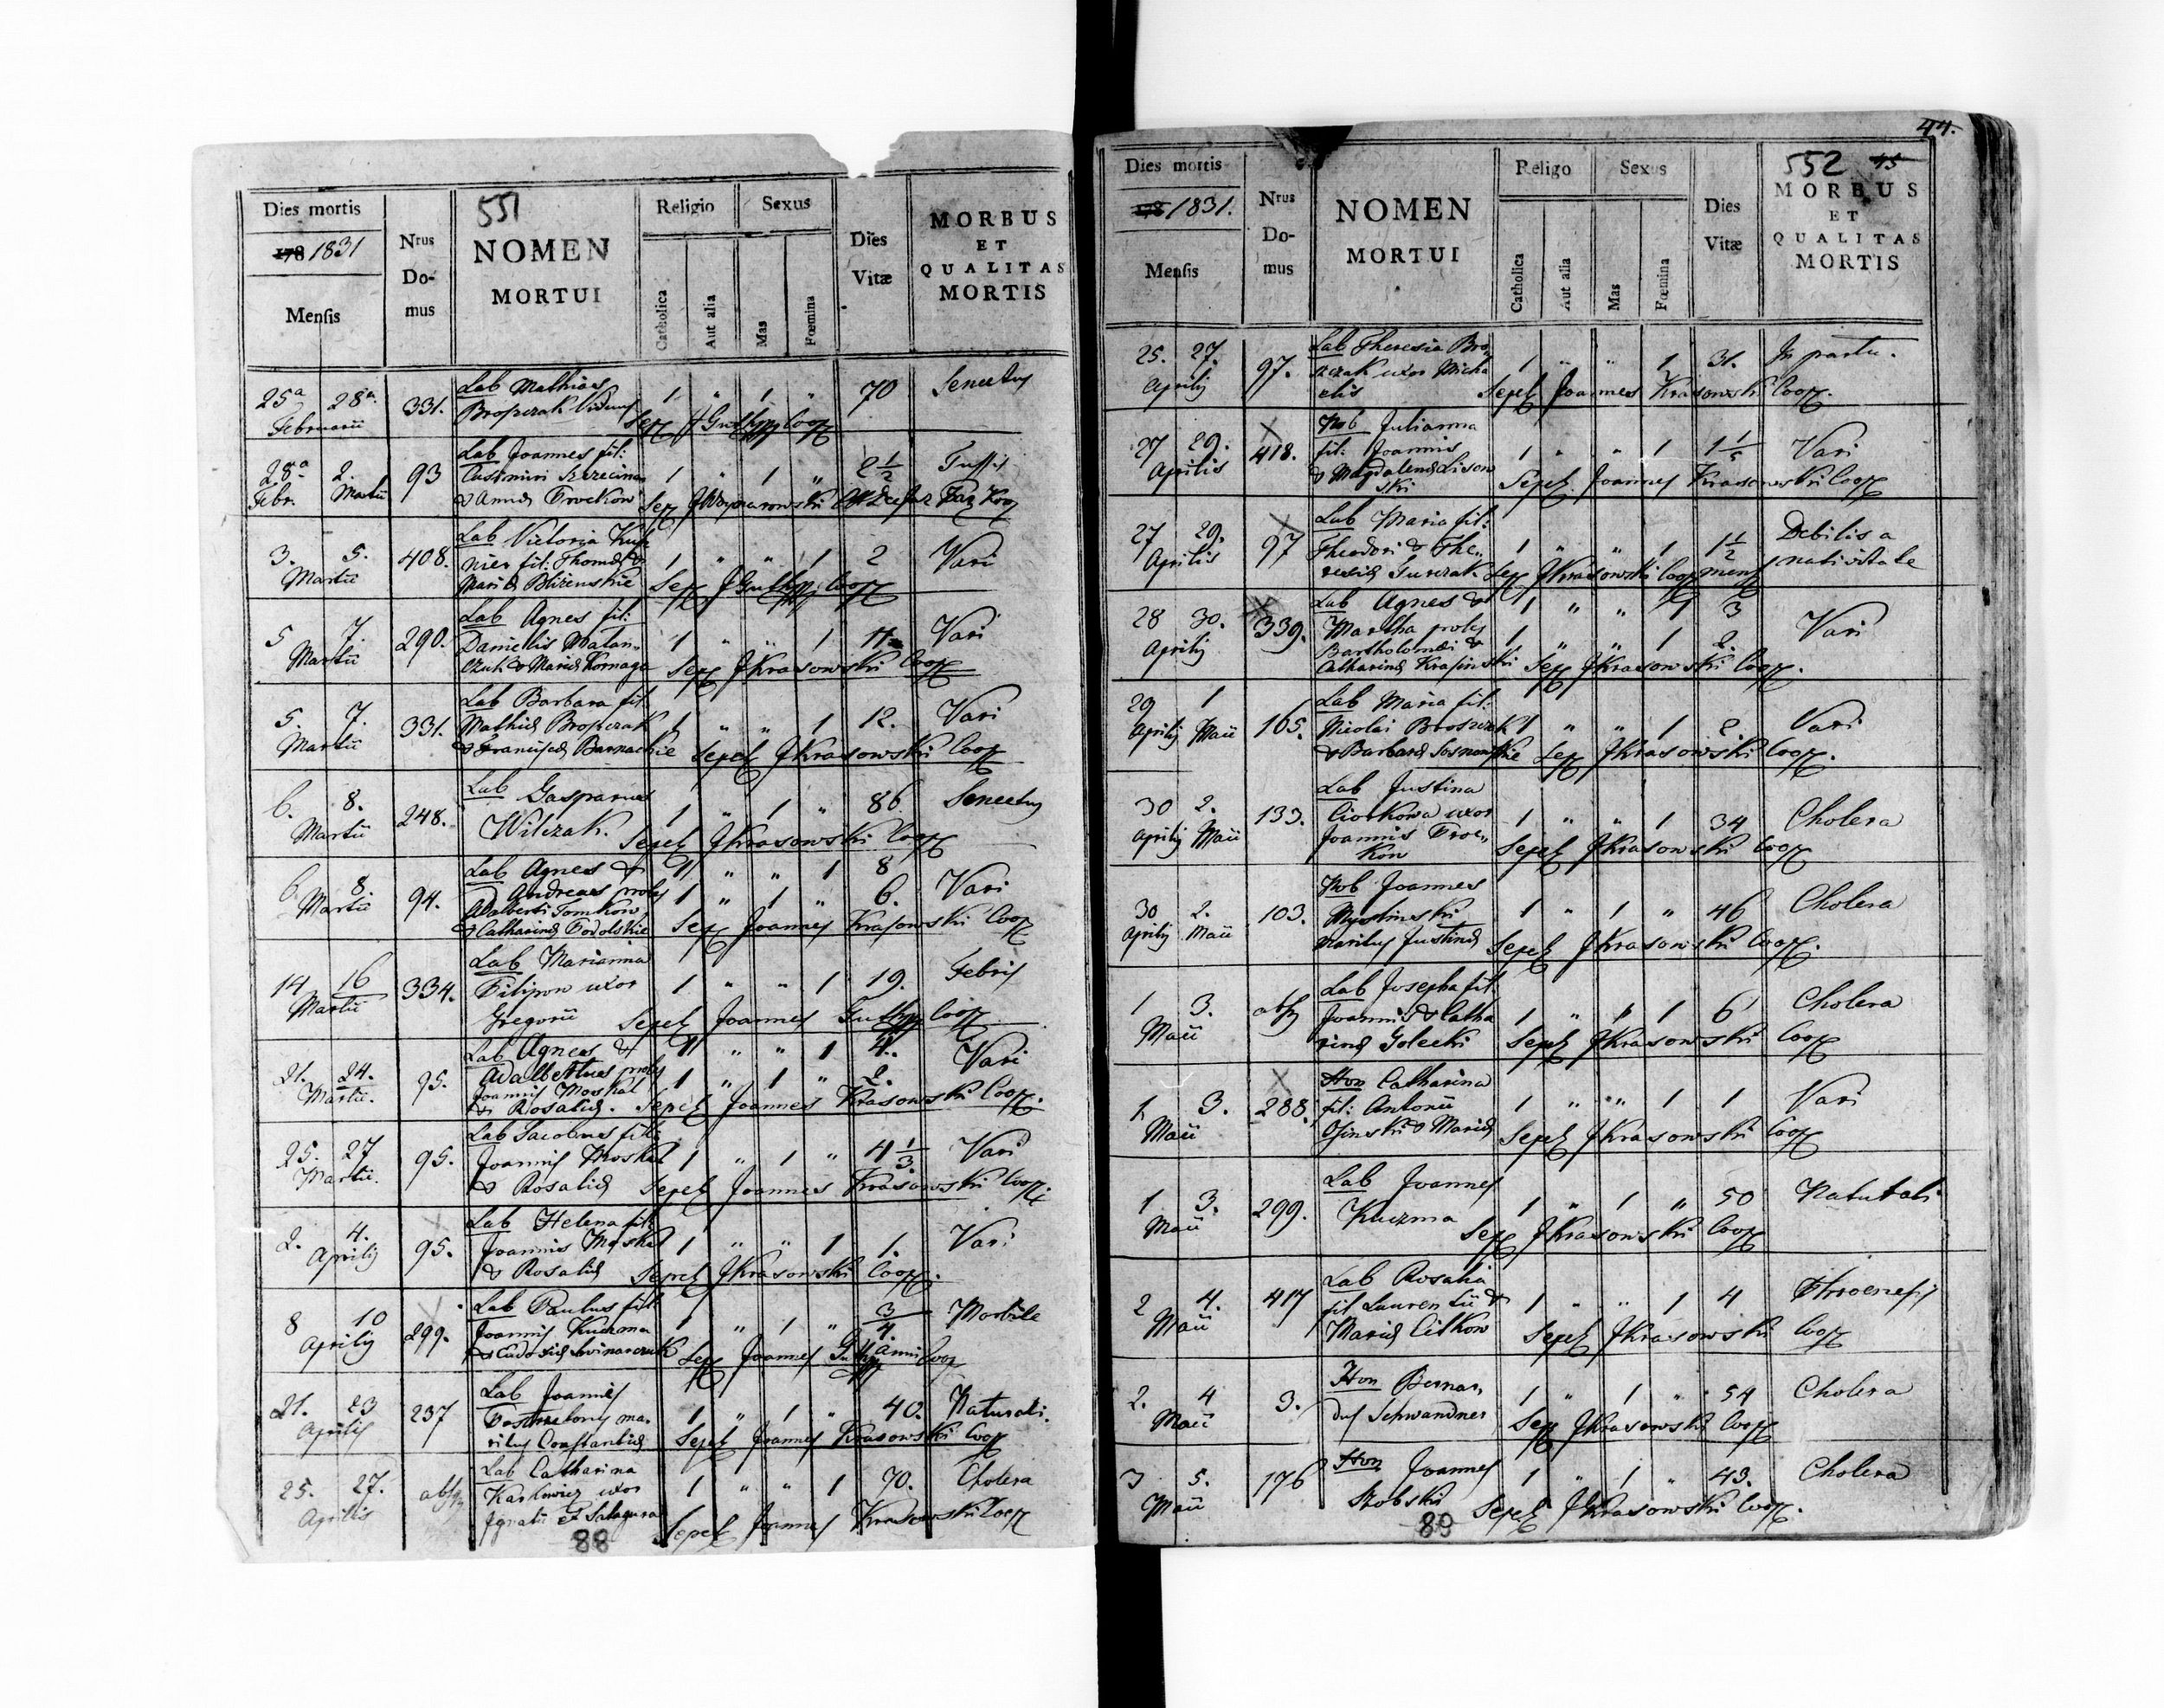 551
Dies mortis
178 1831
Mensis
Nrus
Do-
mus
NOMEN
MORTUI
Religio
Catholica
Aut alia
Sexus
Mas
Fœmina
Dies
Vitæ
MORBUS
ET
QUALITAS
MORTIS
25a 28a
Februarii
331.
Lab Mathias
1 " 1 " 70 Senectus
28a 2.
Febr. Martii
93
Lab Joannes fil:
1 " 1 " 2 1/2 Tussis
3. 5.
Martii
408.
Lab Victoria
nier fil: Thomæ &
1 " " 1 2 Vari
Sep J Coop
5 7.
Martii
290.
Lab Agnes fil:
Danielis
& Mariæ Kornaga
1 " " 1 Vari
Sep JKrasowski Coop
5. 7.
Martii
331.
Lab Barbara fil:
Mathiæ Broszczak
& Franciscæ
1 " " 1 12. Vari
Sepel JKrasowski Coop
6. 8.
Martii
248.
Lab Gasparus
Wilczak.
1 " 1 " 86 Senectus
Sepel JKrasowski Coop
6 8.
Martii
94.
Lab Agnes &
Andreas proles
Adalberti Tomkow
& Catharinæ Podolskie
1 " " 1 8
1 " 1 " 6. Vari
Sep Joannes Krasowski Coop
14 16
Martii
334.
Lab Marianna
Filipow uxor
Gregorii
1 " " 1 19. Febris
Sepel Joannes Coop
21. 24.
Martii.
95.
Lab Agnes &
Adalbertus proles
Joannis Moskal
& Rosaliæ.
1 " " 1 4.
1 " 1 " 2. Vari
Sepel Joannes Krasowski Coop.
25. 27
Martii.
95.
Lab Jacobus fil:
Joannis Moskal
& Rosaliæ
1 " 1 " 4 1/3. Vari
Sepel Joannes Krasowski Coop.
2. 4.
Aprilis
95.
Lab Helena fil:
Joannis Moskal
& Rosaliæ
1 " " 1 1. Vari
Sepel JKrasowski Coop.
8 10
Aprilis
299.
Lab Paulus fil:
Joannis Kuczma
1 " 1 " 3/4. Anni Morbile
Sep Joannes Coop
21. 23
Aprilis
237
Lab Joannes
ma-
ritus Constantiæ
1 " 1 " 40. Naturali.
Sepel Joannes Krasowski Coop
25. 27.
Aprilis
absq
Lab Catharina
Karkowicz uxor
Ignatii
1 " " 1 70. Cholera
Sepel Joannes Krasowski Coop
88
44.
552 45
Dies mortis
178 1831.
Mensis
Nrus
Do-
mus
NOMEN
MORTUI
Religo
Catholica
Aut alia
Sexus
Mas
Fœmina
Dies
Vitæ
MORBUS
ET
QUALITAS
MORTIS
25. 27.
Aprilis
97.
Lab Theresia Bro,,
szczak uxor Micha
elis
1 " " 1 31. In partu.
Sepel Joannes Krasowski Coop.
27 29.
Aprilis
418.
Nob Julianna
fil: Joannis
& Magdalenæ Lisow
ski
1 " " 1 1 1/5 Vari
Sepel Joannes Krasowski Coop
27 29.
Aprilis
97
Lab Maria fil:
Theodori & The,,
resiæ Gurczak
1 " " 1 1 1/2 mens Debilis a
nativitate
Sep JKrasowski Coop
28 30.
Aprilis
339.
Lab Agnes &
Martha proles
Bartholomæi &
Catharinæ Krasinski
1 " " 1 3
1 " " 1 2. Vari
Sep JKrasowski Coop.
29 1
Aprilis Maii
165.
Lab Maria fil:
Nicolai Broszczak
& Barbaræ
1 " " 1 2. Vari
Sep JKrasowski Coop.
30 2.
Aprilis Maii
133.
Lab Justina
Ciotkowa uxor
Joannis Proc,,
kow
1 " " 1 34 Cholera
Sepel JKrasowski Coop
30 2.
Aprilis Maii
103.
Nob Joannes
Maritus Justinæ
1 " 1 " 46 Cholera
Sepel JKrasowski Coop.
1 3.
Maii
absq
Lab Josepha fil:
Joannis & Catha
rinæ Golecki
1 " " 1 6 Cholera
Sepel JKrasowski Coop
1. 3.
Maii
288.
Hon Catharina
fil: Antonii
Osinski & Mariæ
1 " " 1 1 Vari
Sepel JKrasowski Coop
1 3.
Maii
299.
Lab Joannes
Kuczma
1 " 1 " 50 Naturali
Sep JKrasowski Coop
2 4.
Maii
417
Lab Rosalia
fil Laurentii &
Mariæ Citkow
1 " " 1 4
Sepel JKrasowski Coop
2. 4
Maii
3.
Hon Bernar,,
dus Schwandner
1 " 1 " 54 Cholera
Sep JKrasowski Coop
3 5.
Maii
176
Hon Joannes
Szobski
1 " 1 " 43. Cholera
Sepel JKrasowski Coop.
89